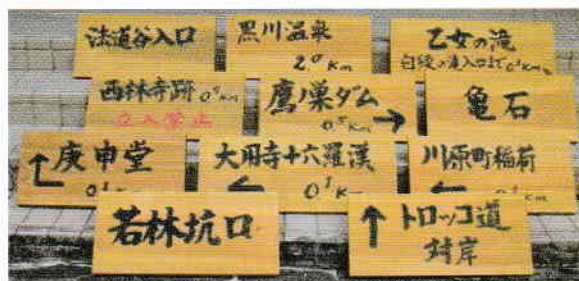 法道谷入口
黒川温泉
2⁰ Km
乙女の滝
白綾の滝入口まで0³Km
西林寺跡 0⁵Km
立入禁止
鷹ノ巣ダム
0⁵Km →
亀石
↑ 庚申堂
大用寺十六羅漢
← 0¹Km
川原町稲荷
←
若林坑口
↑ トロッコ道
対岸